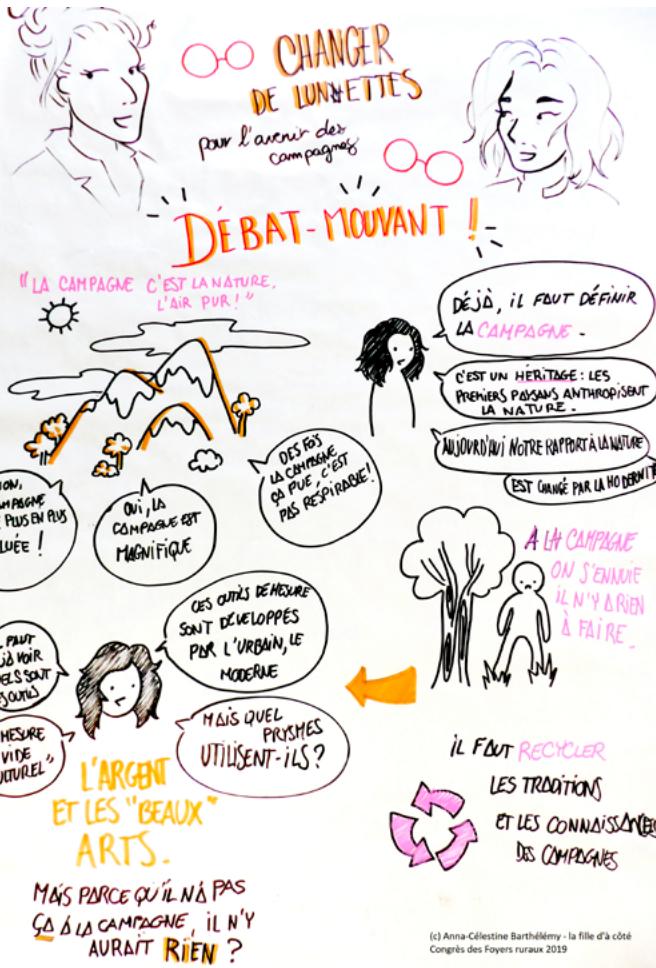 CHANGER
DE LUNETTES
pour l'avenir des
campagnes
DÉBAT-MOUVANT !
"LA CAMPAGNE C'EST LA NATURE,
L'AIR PUR!"
DÉJÀ, IL FAUT DÉFINIR
LA CAMPAGNE.
C'EST UN HÉRITAGE : LES
PREMIERS PAYSANS ANTHROPISENT
LA NATURE.
AUJOURD'HUI NOTRE RAPPORT À LA NATURE
EST CHANGÉ PAR LA MODERNITÉ
PLUS EN PLUS
OUI, LA
CAMPAGNE EST
MAGNIFIQUE
DES FOIS
LA CAMPAGNE
ÇA PUE, C'EST
PAS RESPIRABLE!
À LA CAMPAGNE
ON S'ENNUIE
IL N'Y A RIEN
À FAIRE.
VOIR
SONT
CES OUTILS DE MESURE
SONT DÉVELOPPÉS
PAR L'URBAIN, LE
MODERNE
MESURE
VIDE
MAIS QUEL
PRYSMES
UTILISENT-ILS?
L'ARGENT
ET LES "BEAUX"
ARTS.
MAIS PARCE QU'IL N'A PAS
ÇA À LA CAMPAGNE, IL N'Y
AURAIT RIEN ?
IL FAUT RECYCLER
LES TRADITIONS
ET LES CONNAISSANCES
DES CAMPAGNES
(c) Anna-Célestine Barthélémy - la fille d'à côté
Congrès des Foyers ruraux 2019